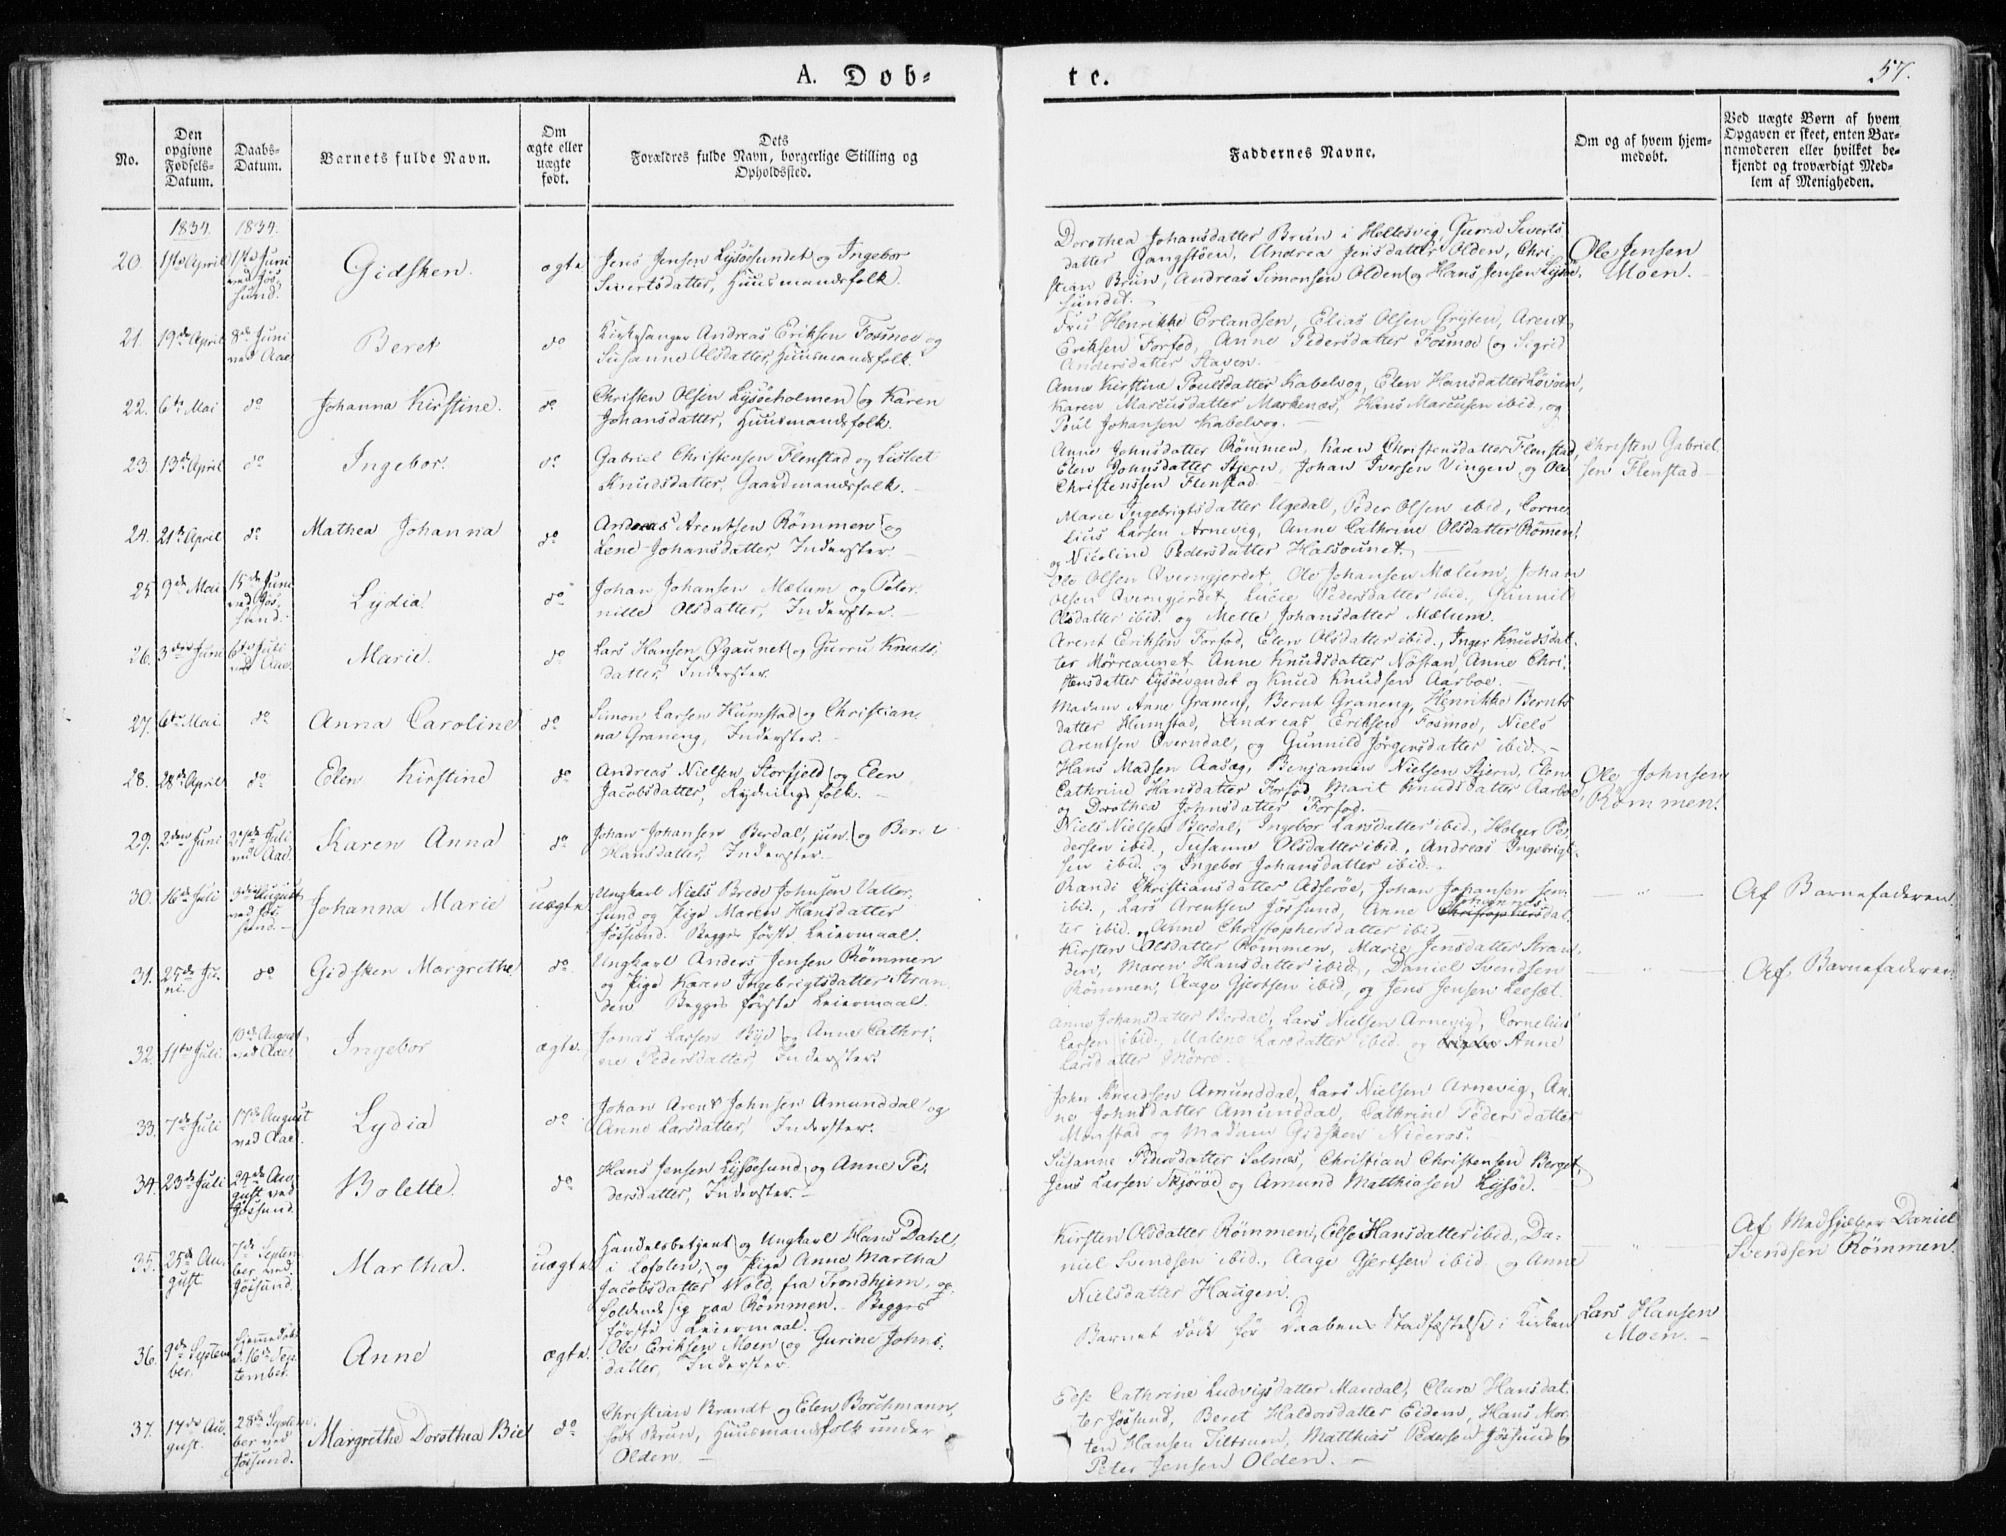 A. Døb-
te.
57.
No.
Den opgivne Fødsels-Datum.
Daabs-Datum.
Barnets fulde Navn.
Om ægte eller uægte født.
Dets Forældres fulde Navn, borgerlige Stilling og Opholdssted.
Faddernes Navne.
Om og af hvem hjemmedøbt.
Ved uægte Børn af hvem Opgaven er skeet, enten Barnemoderen eller hvilket bekjendt og troværdigt Medlem af Menigheden.
1834. 1834.
20. 1ste April 1ste Juni ved Jøssund. Gidsken. ægte
Jens Jensen Lysøesundet og Ingebor
Sivertsdatter, Huusmandsfolk.
Dorothea Johansdatter Brun i Heltesvig, Gurid Siverts
datter Gangstøen, Andrea Jensdatter Olden, Chri
stian Brun, Andreas Simonsen Olden og Hans Jensen Lysøe
sundet.
Ole Jensen
Moen.
21. 19de April 8de Juni ved Aae. Beret do
Kirkesanger Andreas Eriksen Fosmoe og
Susanne Olsdatter, Huusmandsfolk.
Fru Henrikke Erlandsen, Elias Olsen Gryten, Arent
Eriksen Forfod, Anne Pedersdatter Fosmoe og Sigrid
Andersdatter Staven.
22. 6te Mai do Johanna Kirstine. do
Christen Olsen Lysøeholmen og Karen
Johansdatter, Huusmandsfolk.
Anne Kirstine Poulsdatter Kabelvog, Elen Hansdatter
Karen Marcusdatter Markenæs, Hans Marcusen ibid., og
Poul Johansen Kabelvog.
23. 13de April do Ingebor. do
Gabriel Christensen Flenstad og Lisbet
Knudsdatter, Gaardmandsfolk.
Anne Johnsdatter Rømmen, Karen Christensdatter Flenstad,
Elen Johnsdatter Stjern, Johan Iversen Vingen, og Ole
Christenssen Flenstad.
Christen Gabriel
sen Flenstad
24. 21de April do Mathea Johanna do
Andreas Arentsen Rømmen og
Lene Johansdatter Inderster
Marie Ingebrigtsdatter Ugedal, Peder Olsen ibid, Corne
lius Larsen Arnevig, Anne Cathrine Olsdatter Rømmen,
og Nicoline Pedersdatter Halsaunet.
25 9de Mai 15de Juni ved Jøssund. Lydia. do
Johan Johansen Mælum og Peter
nille Olsdatter, Inderster.
Ole Olsen Overngjerdet, Ole Johansen Mælum, Johan
Olsen Overngjerdet, Lucie Pedersdatter ibid., Gunnild
Olsdatter ibid. og Mette Johansdatter Mælum.
26. 3den Juni 6te Juli ved Aae. Marie. do
Lars Hansen Øgaunet og Gurru Knuds
datter, Inderster.
Arent Eriksen Forfod, Elen Olsdatter ibid., Inger Knudsdat
ter Mørreaunet, Anne Knudsdatter Nøstan, Anne Chri
stensdatter Lysøevandet og Knud Knudsen Aarboe.
27. 6te Mai. do Anna Caroline do
Simon Larsen Humstad og Christian
na Graneng, Inderster.
Madam Anne Graneng, Bernt Graneng, Henrikke Bernts
datter Humstad, Andreas Eriksen Fosmoe, Niels
Arentsen Overndal, og Gunnild Jørgensdatter ibid.
28. 28de April do Elen Kirstine do
Andreas Nielsen Storfjeld og Elen
Jacobsdatter, Rydningsfolk.
Hans Madsen Aasæg, Benjamin Nielsen Stjern, Elen
Cathrine Hansdatter Forfod, Marit Knudsdatter Aarboe,
og Dorothea Johnsdatter Forfod.
Ole Johnsen
Rømmen.
29. 2den Juni 27de Juli ved Aae. Karen Anna do
Johan Johansen Berdal, jun. og Beret
Hansdatter, Inderster.
Niels Nielsen Berdal, Ingebor Larsdatter ibid., Holger Pe
dersen ibid., Susanne Olsdatter ibid., Andreas Ingebrigt
sen ibid. og Ingebor Johansdatter ibid.
30. 16de Juli 3die August ved Jøssund. Johanna Marie uægte
Ungkarl Niels Brede Johnsen Valler
sund og Pige Maren Hansdatter
Jøssund. Begges første Leiermaal.
Randi Christiansdatter Adserøe, Johan Johansen sen.
ibid., Lars Arentsen Jøssund, Anne Johannes
Christophersdat
ter ibid. og Anne Christophersdatter ibid
Af Barnefaderen.
31. 25de Juni do Gidsken Margrethe do
Ungkarl Anders Jensen Rømmen
og Pige Karen Ingebrigtsdatter Stran
den Begges første Leiermaal.
Kirsten Olsdatter Rømmen, Marie Jensdatter Stran
den, Maren Hansdatter ibid., Daniel Svendsen
Rømmen, Aage Gjertsen ibid, og Jens Jensen Leesæt.
Af Barnefaderen
32. 11te Juli 10de August ved Aae. Ingebor ægte.
Jonas Larsen Bye og Anne Cathri
ne Pedersdatter, Inderster.
Anne Johansdatter Berdal, Lars Nielsen Arnevig, Cornelius
Larsen ibid., Malene Larsdatter ibid. og Anne
Larsdatter Mørre.
33. 7de Juli 17de August ved Aae. Lydia do
Johan Arent Johnsen Amunddal og
Anne Larsdatter, Inderster.
John Knudsen Amunddal, Lars Nielsen Arnevig, An
ne Johnsdatter Amunddal, Cathrine Pedersdatter
Monstad og Madam Gidsken Nideros.
34. 23de Juli 24de August ved Jøssund. Bolette. do
Hans Jensen Lysøesund og Anne Pe
dersdatter, Inderster.
Susanne Pedersdatter Selnes, Christian Christensen Berget,
Jens Larsen Skjørøe og Amund Matthiasen Lysøe.
35. 25de August 7de September ved Jøssund. Martha. uægte
Handelsbetjent og Ungkarl Hans Dahl
i Lofoten, og Pige Anne Martha
Jacobsdatter Wold fra Trondhjem, op
holdende sig paa Rømmen. Begges
første Leiermaal.
Kirsten Olsdatter Rømmen, Else Hansdatter ibid., Da
niel Svendsen ibid., Aage Gjertsen ibid. og Anne
Nielsdatter Haugen.
Af Medhjælper Daniel
Svendsen Rømmen.
36. 9de September hjemmedøbt d. 16de September. Anne ægte.
Ole Eriksen Moen og Gurine Johns
datter, Inderster.
Barnet døde før Daabens Stadfæstelse i Kirken
Lars Hansen
Moen.
37. 17de August. 28de September ved Jøssund. Margrethe Dorothea Bie do
Christian Brandt og Elen Borchmann,
født Brun, Huusmandsfolk under
Olden.
Else Cathrine Ludvigsdatter Mandal, Clara Hansdat
ter Jøssund, Beret Haldorsdatter Eidem, Hans Mor
ten Hansen Tiltrem, Matthias Pedersen Jøssund og
Peter Jensen Olden.